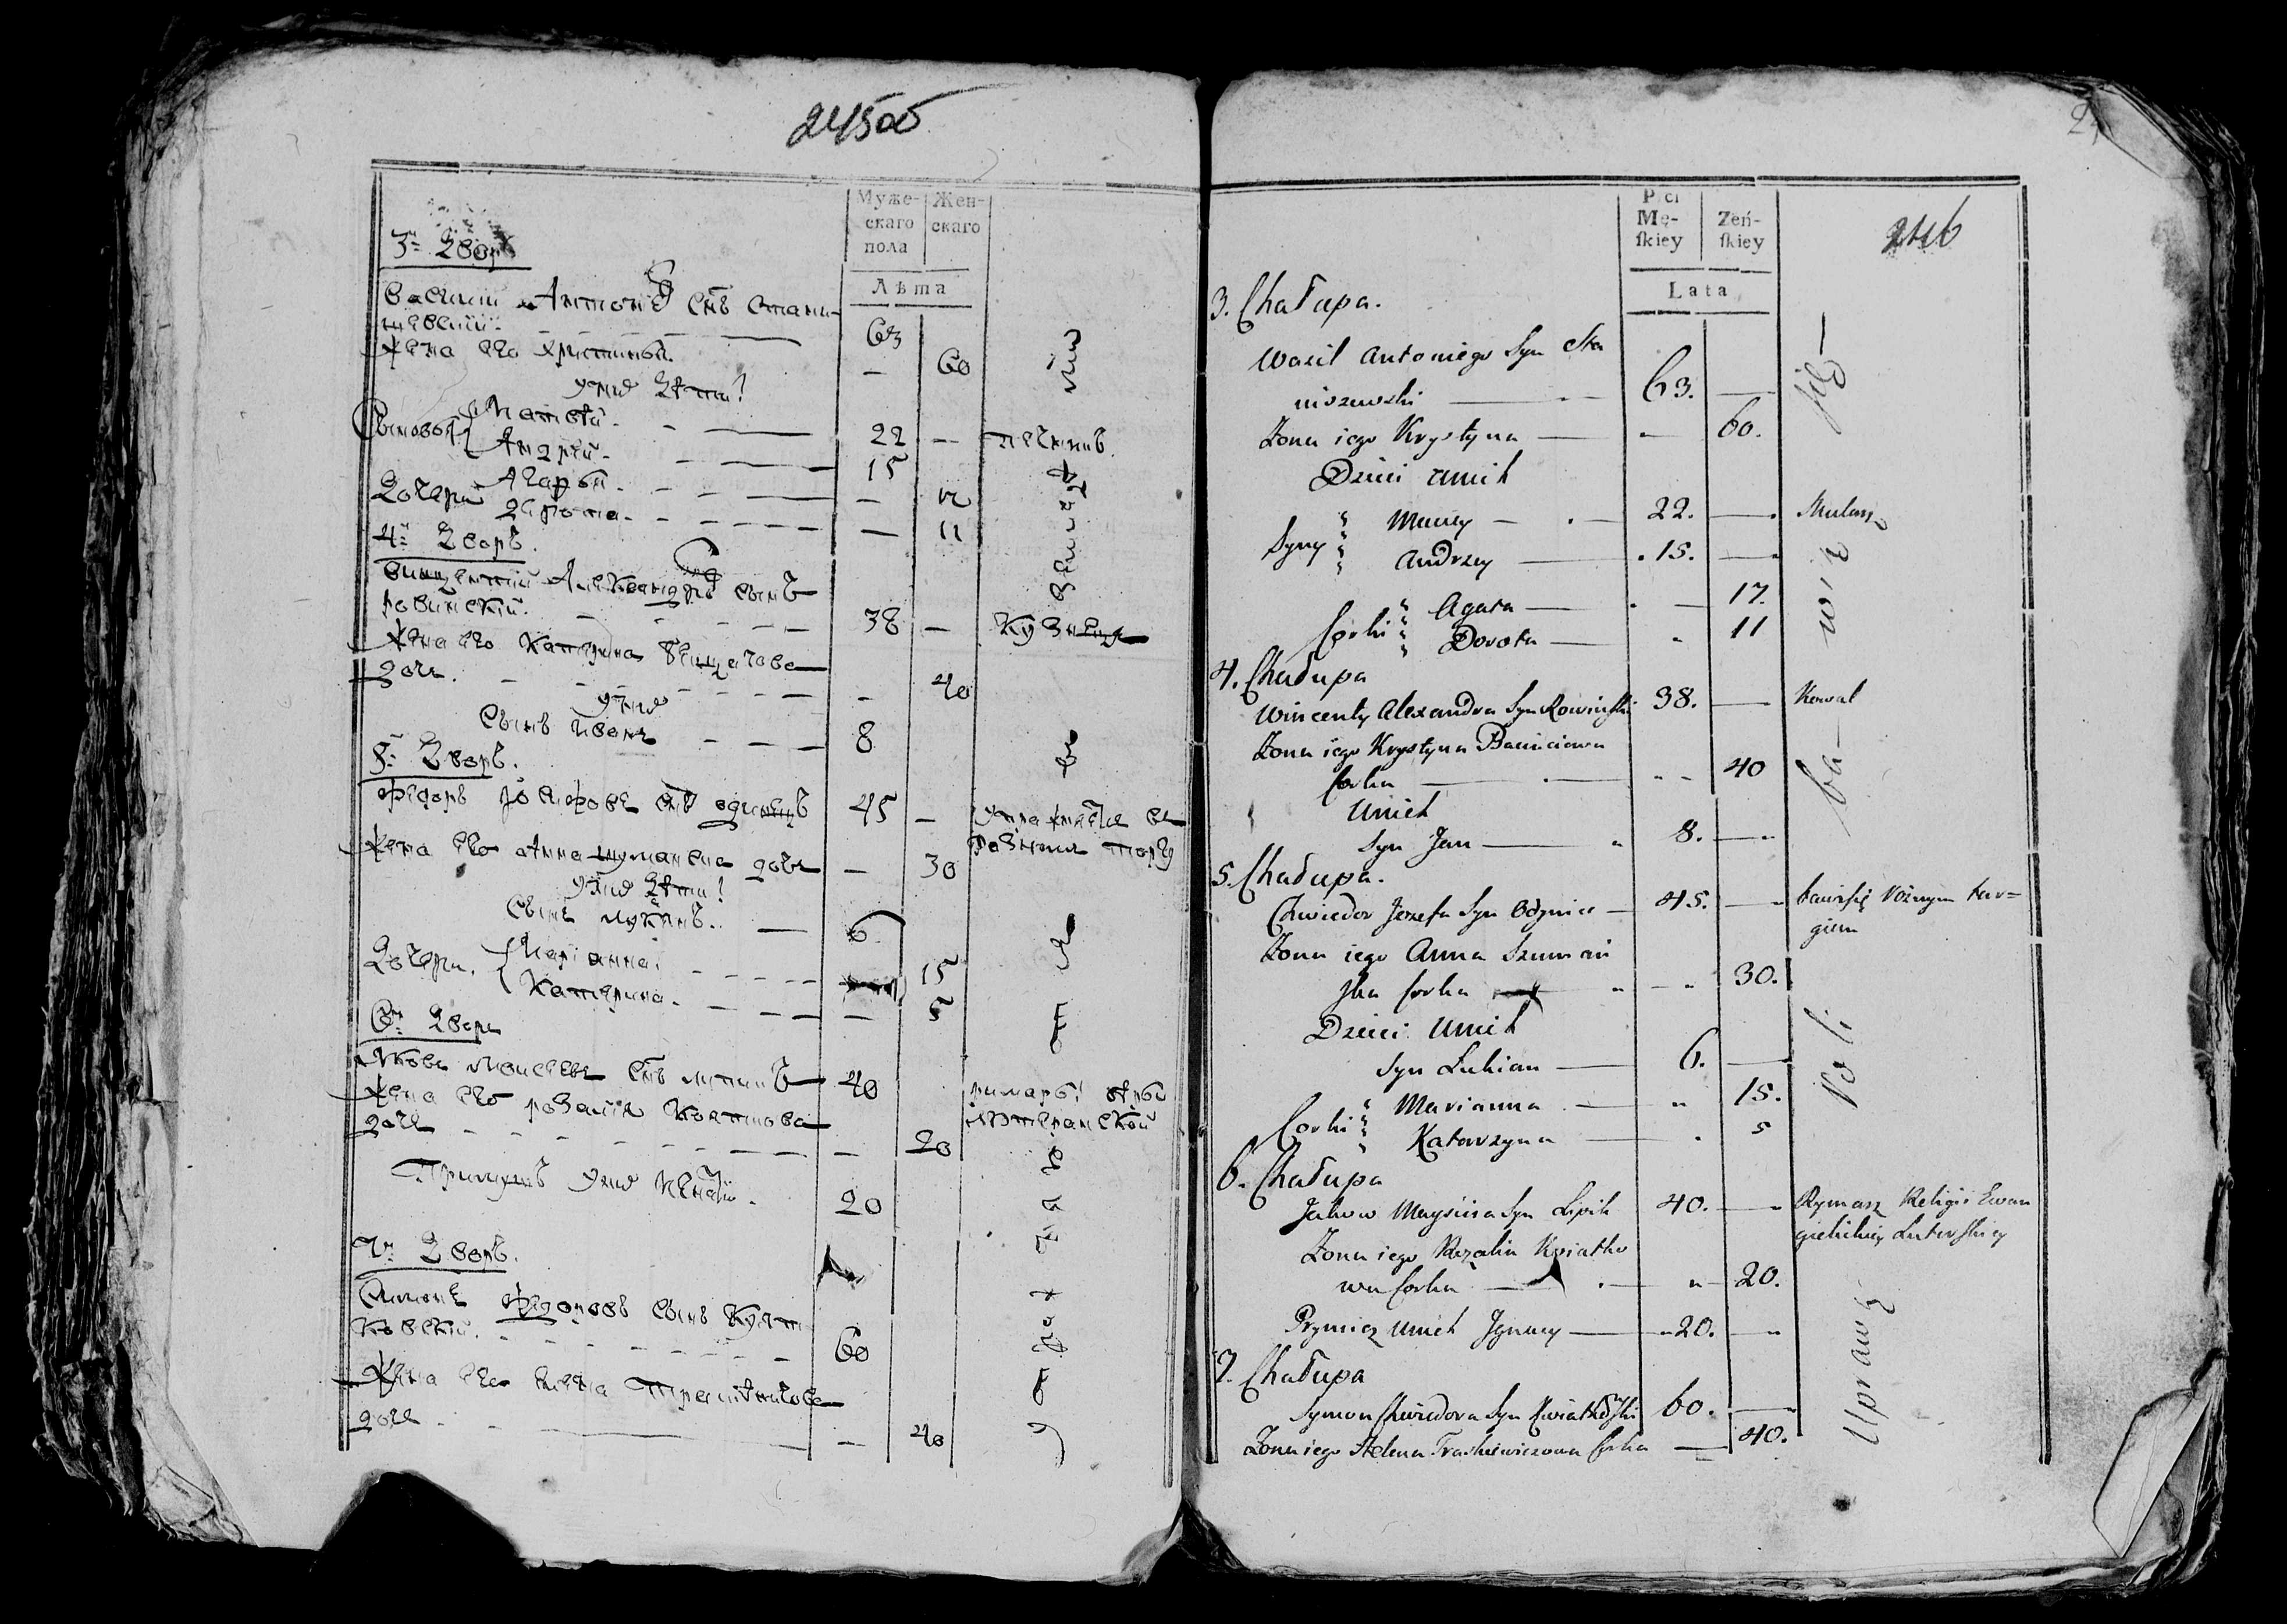 245об
Муже-
скаго
пола
Жен-
скаго
Лѣта
3й Дворъ
Василий Антоніў снъ Стани-
шевский 63
Жена его Христина 60
У них дѣти:
Сыновья Матвѣй 22
Андрей 15
Дочери Агафья 17
Дорота 11
4й Дворъ.
Винцентий Александръ сынъ
Ровинский 38 Кузнецъ
Жена его Катерина
дочь 40
У них
Сынъ Иванъ 8
5й Дворъ.
Федоръ Іосифовъ снъ Одинецъ 45
Жена его Анна Шуманска дочь 30
У них дѣти:
Сынъ Лукянъ 6
Дочери. Маріанна 15
Катерина 5
6й Дворъ
Яковъ Моисеевъ снъ Липикъ 40
Жена его Розалия Квяткова
дочь 20
Примутъ у них Игнатій 20
7й Дворъ.
Симонъ Федоровъ сынъ Квят-
ковский 60
Жена его Елена
дочь 40
246
Płci
Mę-
ſkiey
Żeń-
ſkiey
Lata
3. Chałupa.
Wasil Antoniego Syn Sta
niszewski 63.
Żona iego Krystyna 60.
Dzieci u nich
Syny Maciey 22.
Andrzey 15.
Corki Agata 17.
Dorota 11
4. Chałupa
Wincenty Alexandra Syn Rowinski 38. Kowal
Żona iego Krystyna
Corka 40
U nich
Syn Jan 8.
5. Chałupa.
Chwiedor Jozefa Syn Odyniec 45. bawi się roznym tar=
giem
Żona iego Anna Szumań
ska Corka 30.
Dzieci U nich
Syn Lukian 6.
Corki Marianna 15.
Katarzyna 5
6. Chałupa
Jakow Moysieia Syn Lipik 40. Rymarz Religii Ewan
gielickiey Luterskiey
Żona iego Rozalia Kwiatko
wa Corka 20.
Prymicz U nich Jgnacy 20.
7. Chałupa
Symon Chwiedora Syn Kwiatkowski 60.
Żona iego Helena Traskiewiczowa Corka 40.
Uprawą Roli ba wie się